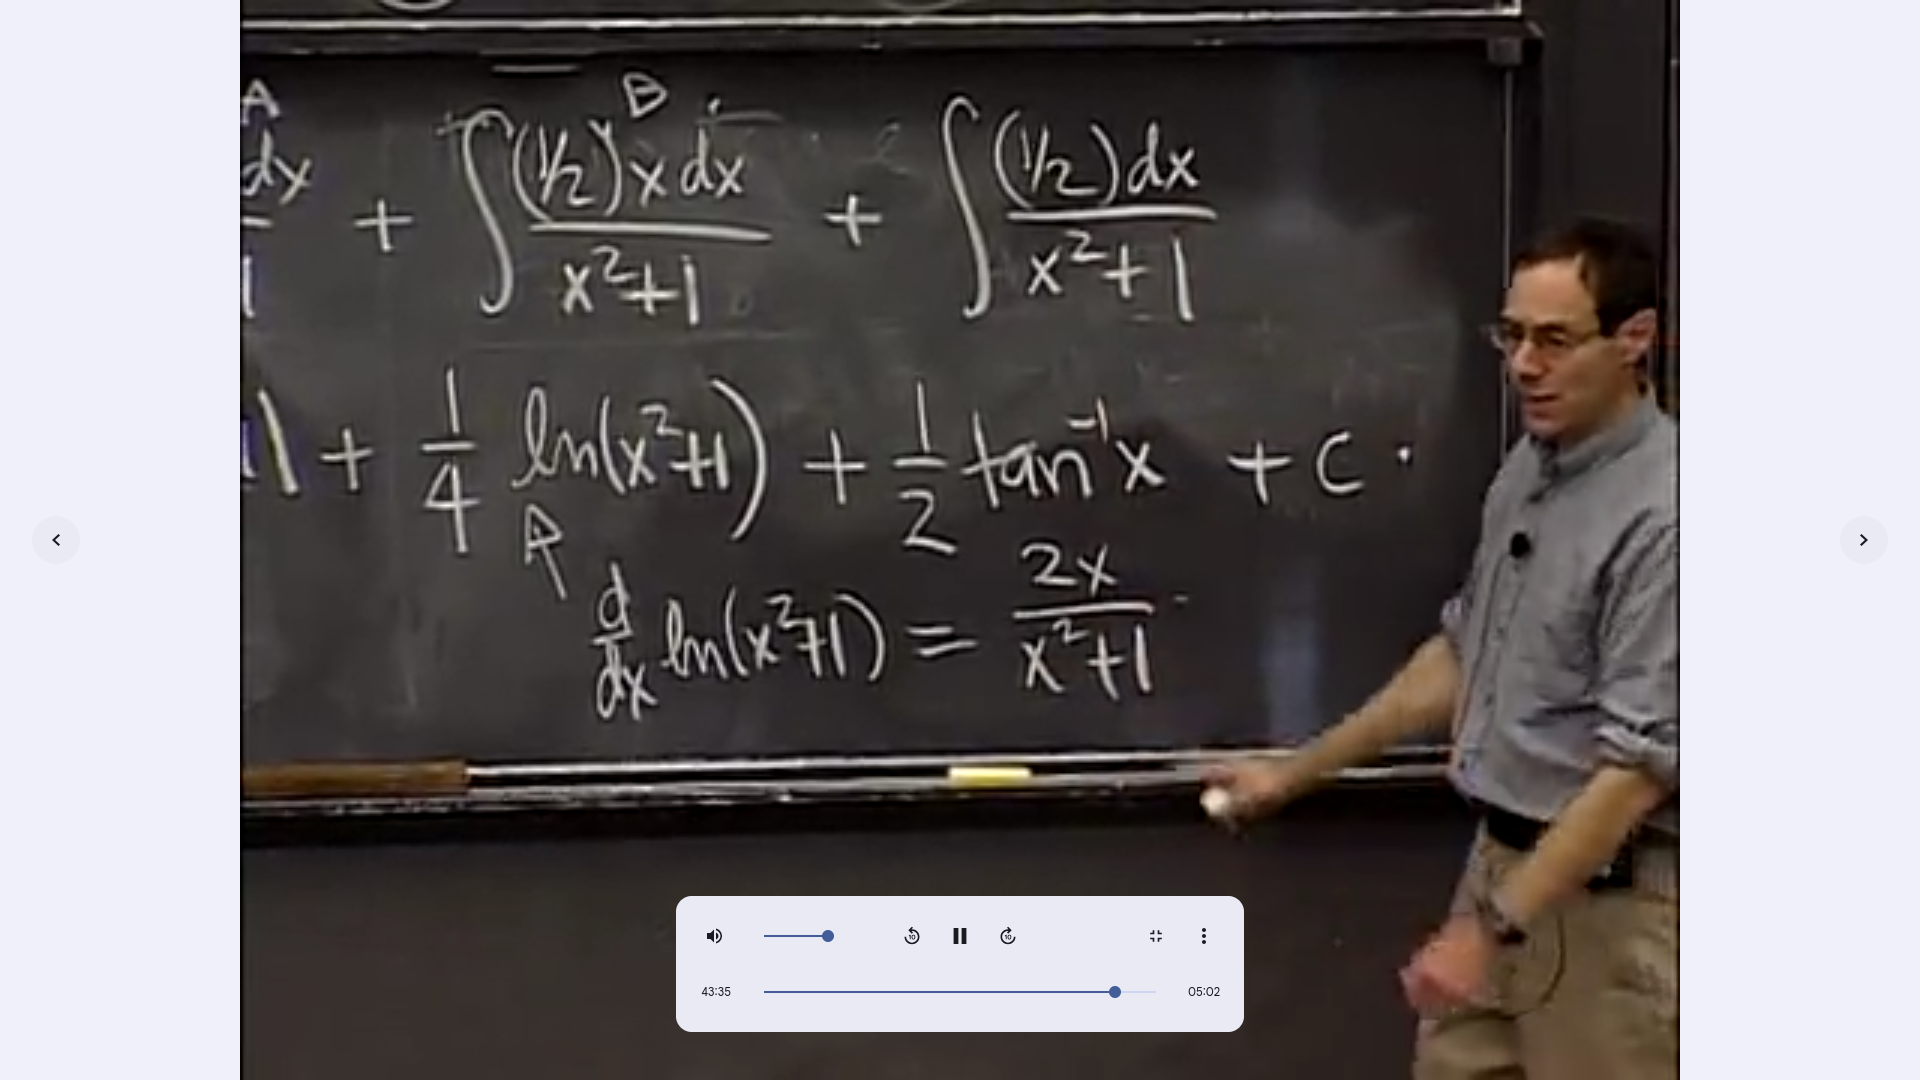 A B
dx + ∫ (1/2) x dx / x²+1 + ∫ (1/2) dx / x²+1
1| + 1/4 ln(x²+1) + 1/2 tan⁻¹x + c .
d/dx ln(x²+1) = 2x / x²+1
10 10
43:35 05:02